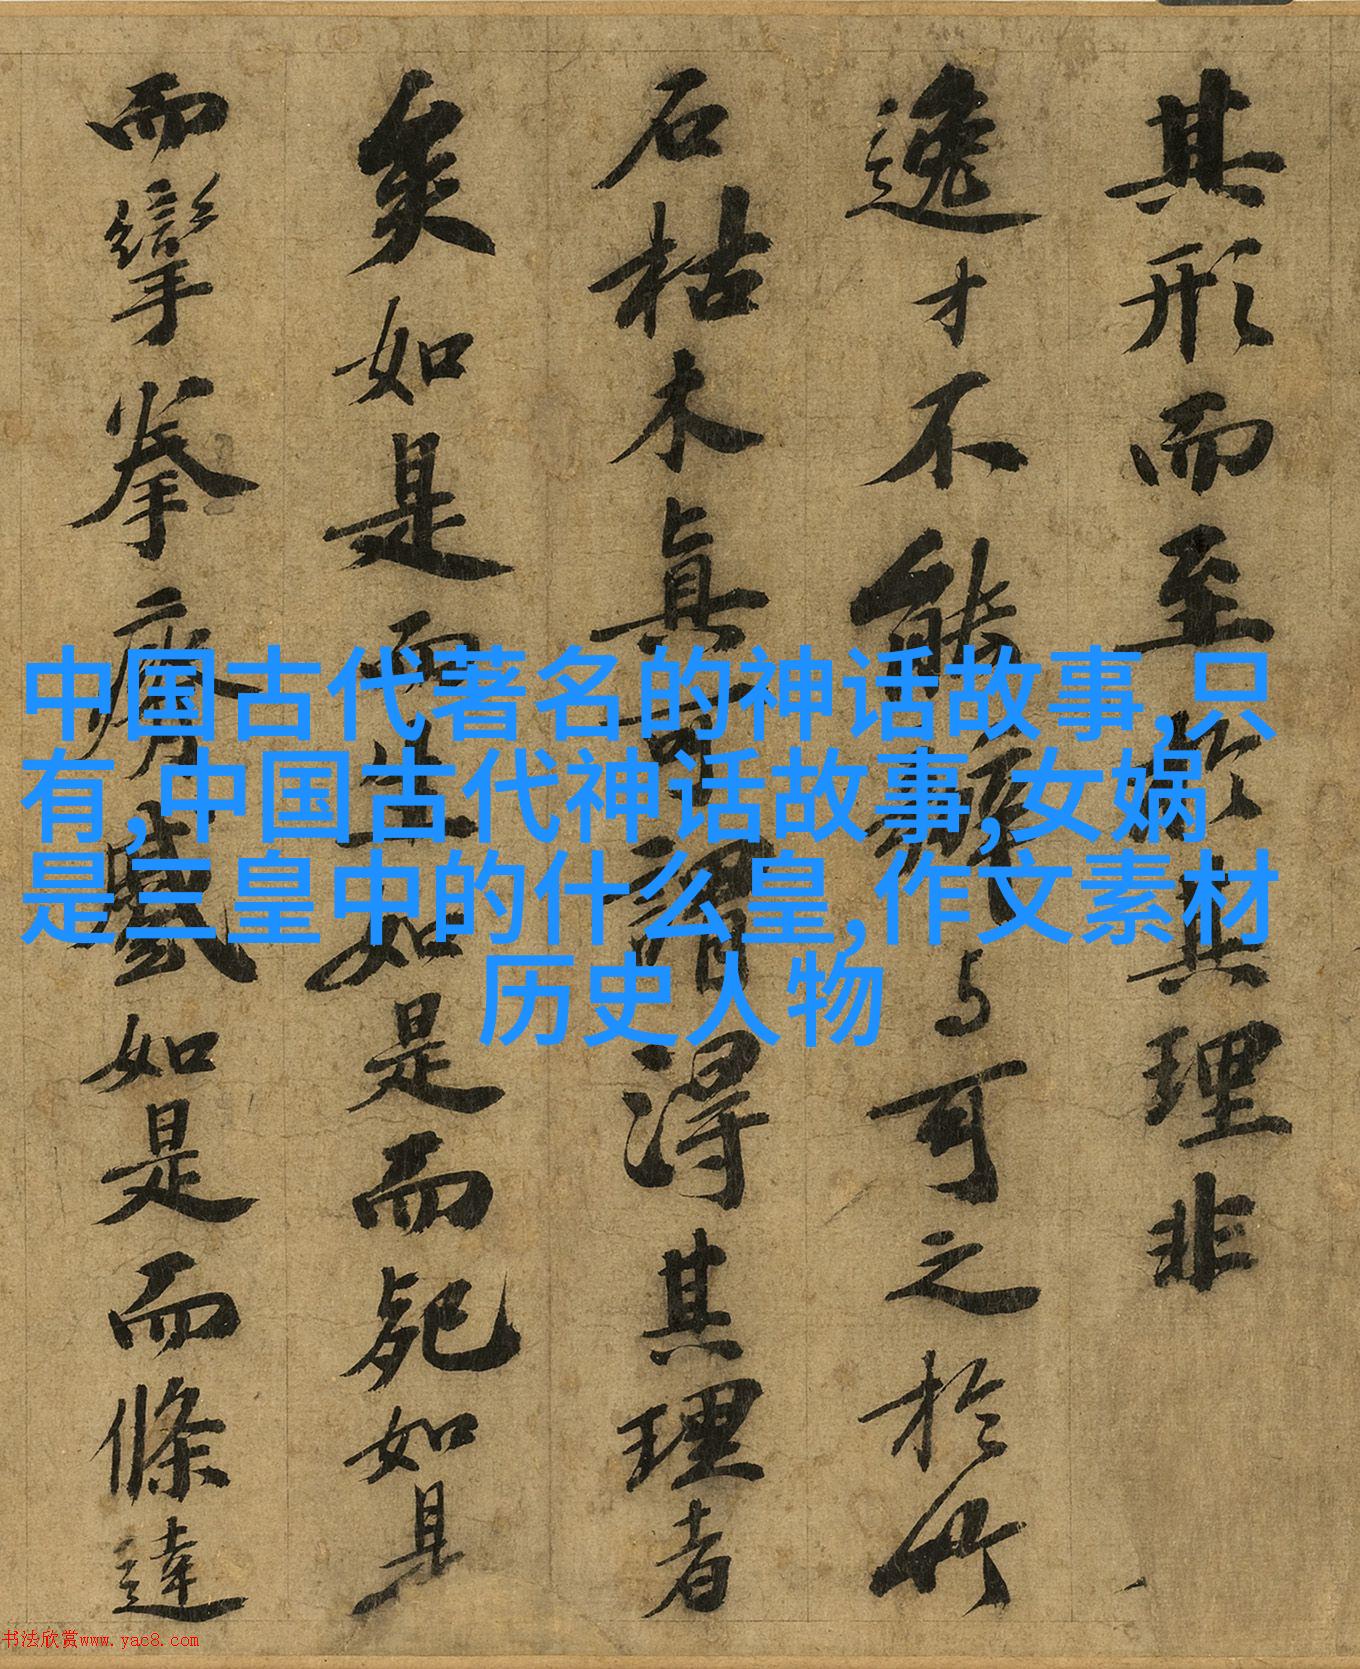 其形而至於其理非
逸才不能辨与可之於竹
石枯木真可謂得其理者
矣如是而生如是而死如是
而攣拳瘠蹙如是而條達
中国古代著名的神话故事,只
有,中国古代神话故事,女娲
是三皇中的什么皇,作文素材
历史人物
书法欣赏www.yac8.com